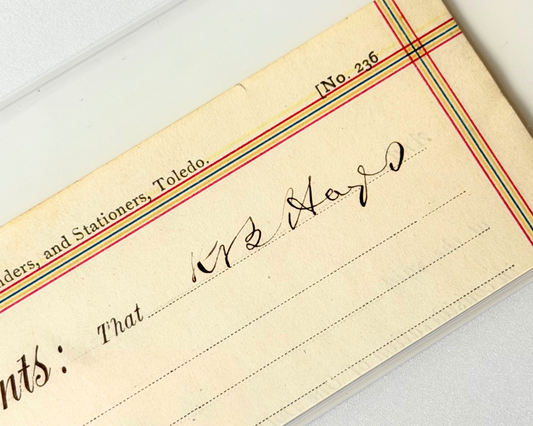 [No. 236
nders, and Stationers, Toledo.
nts: That R B Hayes